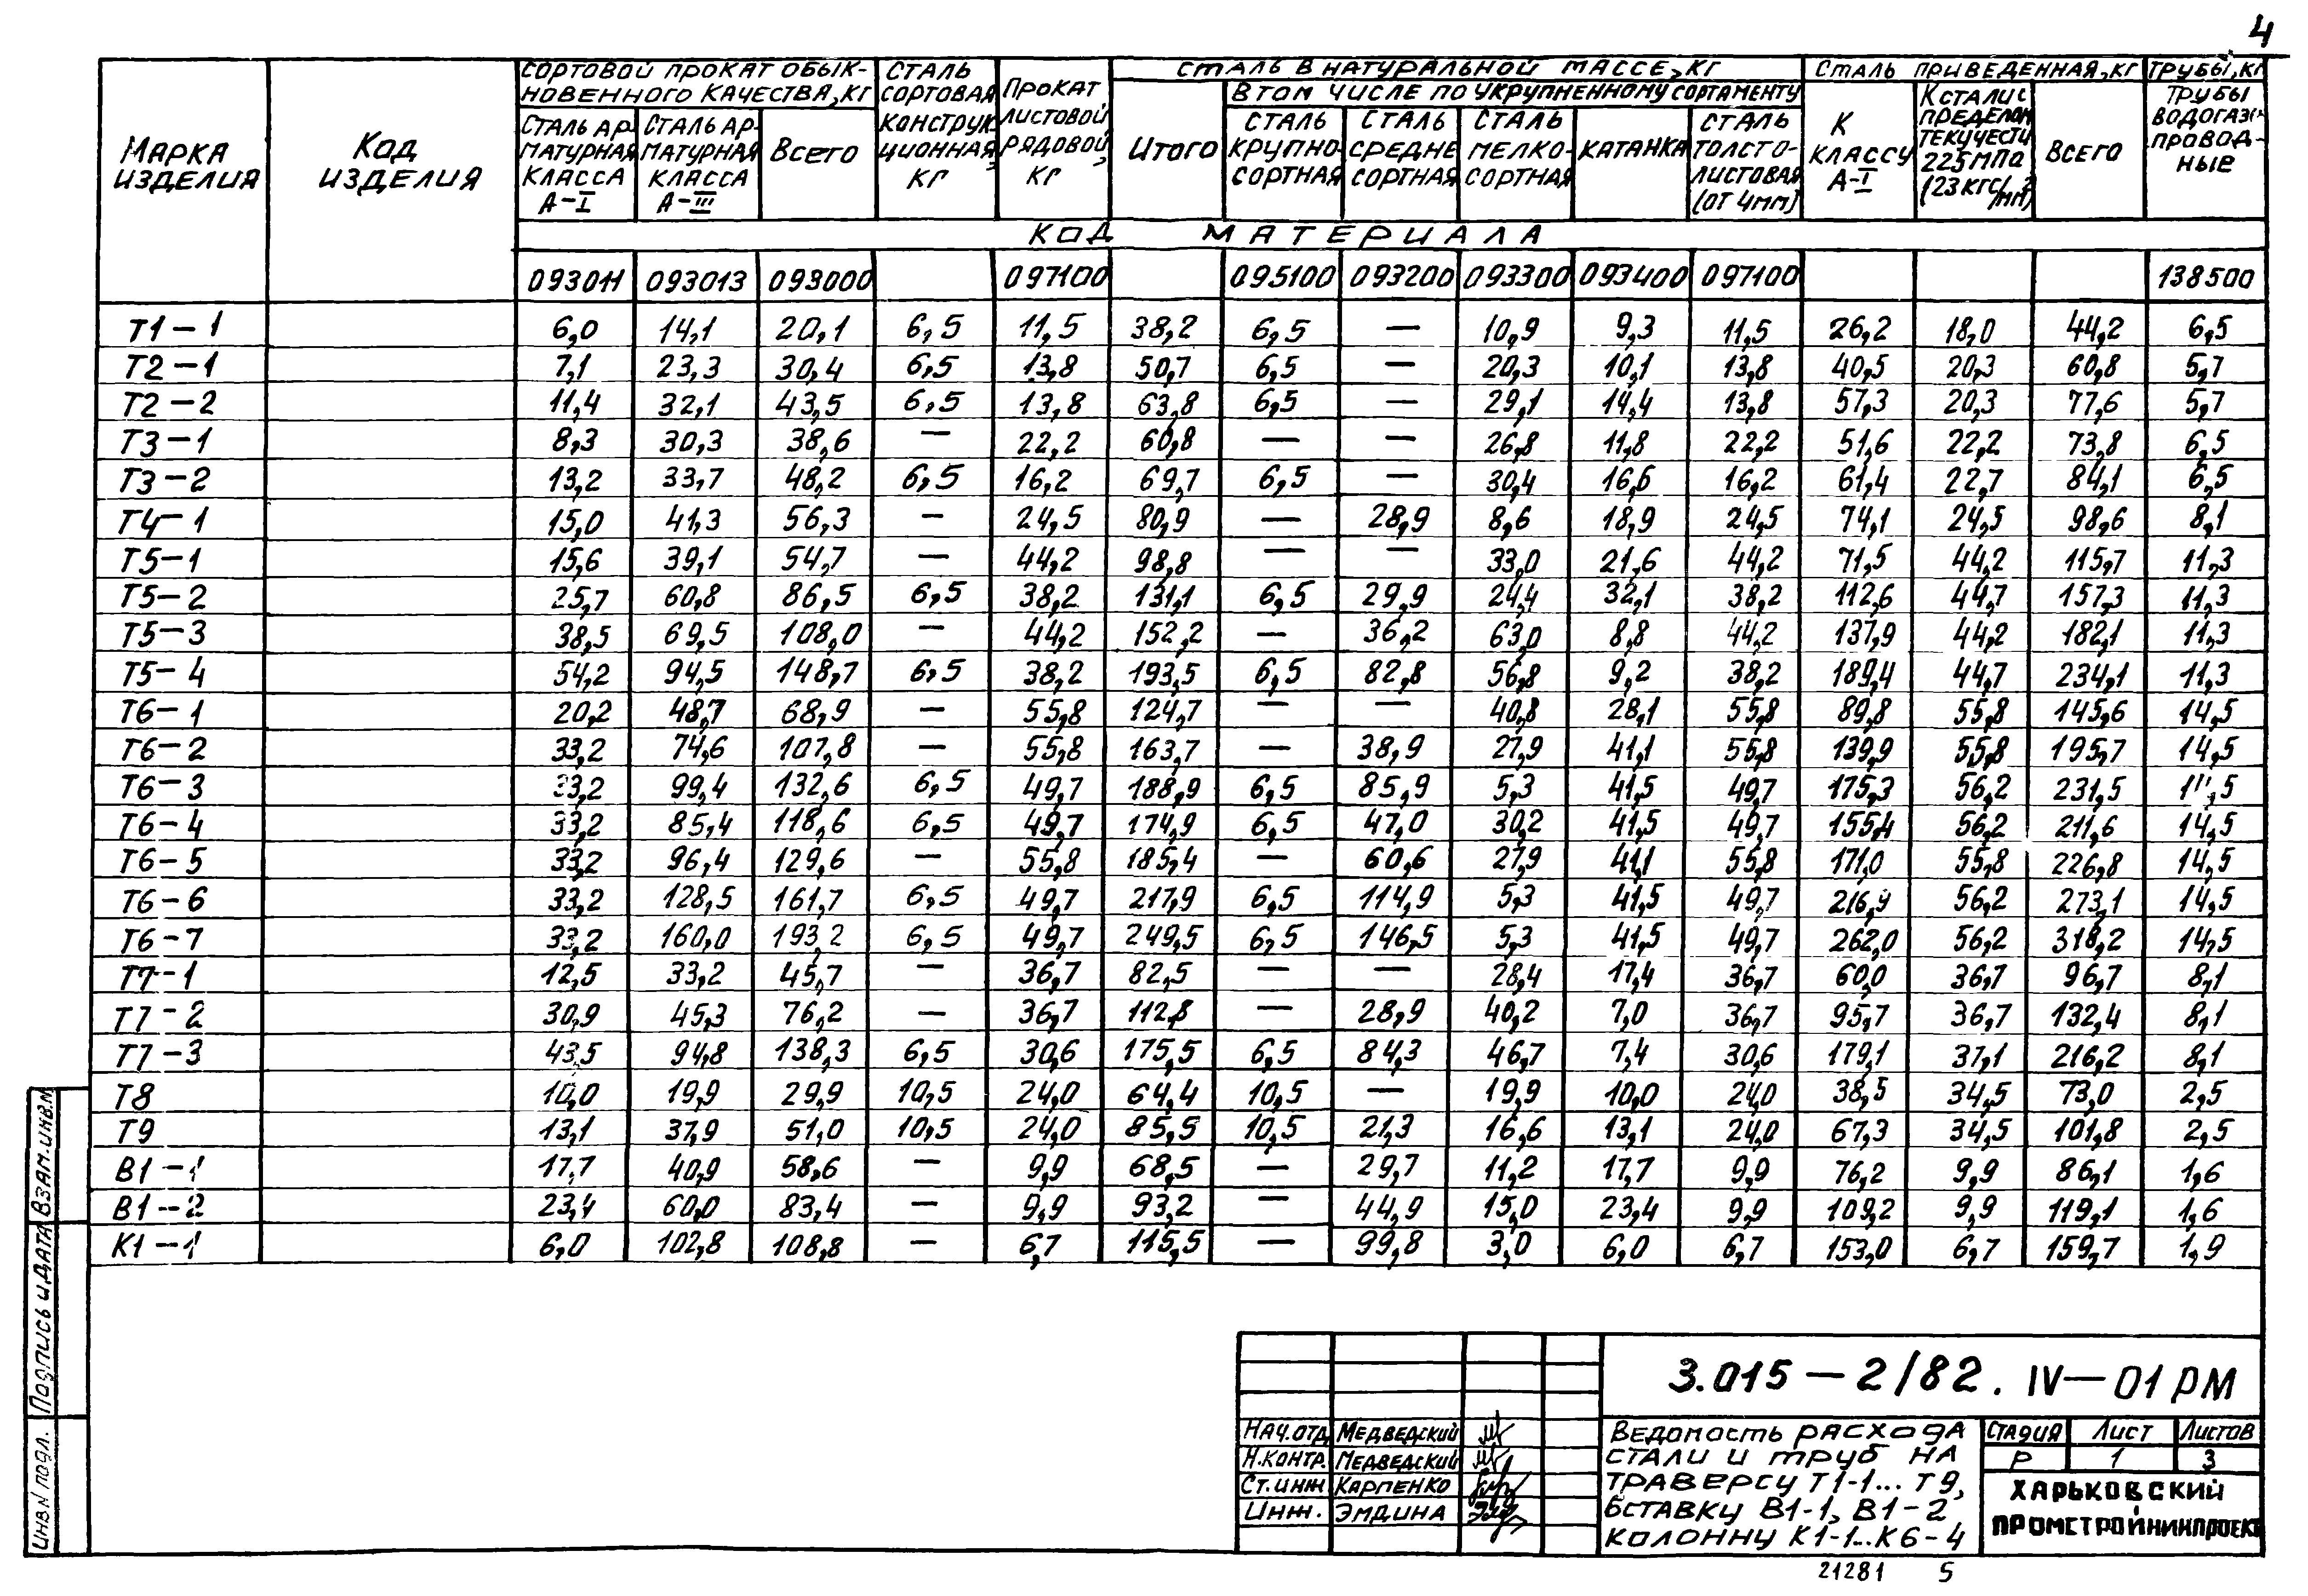 4
МАРКА ИЗДЕЛИЯ
КОД ИЗДЕЛИЯ
СОРТОВОЙ ПРОКАТ ОБЫК-
НОВЕННОГО КАЧЕСТВА, КГ
СТАЛЬ АР-
МАТУРНАЯ
КЛАССА
А-I
СТАЛЬ АР-
МАТУРНАЯ
КЛАССА
А-III
ВСЕГО
СТАЛЬ
СОРТОВАЯ
КОНСТРУК-
ЦИОННАЯ,
КГ
ПРОКАТ
ЛИСТОВОЙ
РЯДОВОЙ,
КГ
СТАЛЬ В НАТУРАЛЬНОЙ МАССЕ, КГ
ИТОГО
В ТОМ ЧИСЛЕ ПО УКРУПНЕННОМУ СОРТАМЕНТУ
СТАЛЬ
КРУПНО-
СОРТНАЯ
СТАЛЬ
СРЕДНЕ
СОРТНАЯ
СТАЛЬ
МЕЛКО-
СОРТНАЯ
КАТАНКА
СТАЛЬ
ТОЛСТО-
ЛИСТОВАЯ
(ОТ 4ММ)
СТАЛЬ ПРИВЕДЕННАЯ, КГ
К
КЛАССУ
А-I
К СТАЛИ С
ПРЕДЕЛОМ
ТЕКУЧЕСТИ
225 МПА
(23 КГС/ММ²)
ВСЕГО
ТРУБЫ, КГ
ТРУБЫ
ВОДОГАЗО-
ПРОВОД-
НЫЕ
КОД МАТЕРИАЛА
093011 093013 093000 097100 095100 093200 093300 093400 097100 138500
Т1-1 6,0 14,1 20,1 6,5 11,5 38,2 6,5 — 10,9 9,3 11,5 26,2 18,0 44,2 6,5
Т2-1 7,1 23,3 30,4 6,5 13,8 50,7 6,5 — 20,3 10,1 13,8 40,5 20,3 60,8 5,7
Т2-2 11,4 32,1 43,5 6,5 13,8 63,8 6,5 — 29,1 14,4 13,8 57,3 20,3 77,6 5,7
Т3-1 8,3 30,3 38,6 — 22,2 60,8 — — 26,8 11,8 22,2 51,6 22,2 73,8 6,5
Т3-2 13,2 33,7 48,2 6,5 16,2 69,7 6,5 — 30,4 16,6 16,2 61,4 22,7 84,1 6,5
Т4-1 15,0 41,3 56,3 — 24,5 80,9 — 28,9 8,6 18,9 24,5 74,1 24,5 98,6 8,1
Т5-1 15,6 39,1 54,7 — 44,2 98,8 — — 33,0 21,6 44,2 71,5 44,2 115,7 11,3
Т5-2 25,7 60,8 86,5 6,5 38,2 131,1 6,5 29,9 24,4 32,1 38,2 112,6 44,7 157,3 11,3
Т5-3 38,5 69,5 108,0 — 44,2 152,2 — 36,2 63,0 8,8 44,2 137,9 44,2 182,1 11,3
Т5-4 54,2 94,5 148,7 6,5 38,2 193,5 6,5 82,8 56,8 9,2 38,2 189,4 44,7 234,1 11,3
Т6-1 20,2 48,7 68,9 — 55,8 124,7 — — 40,8 28,1 55,8 89,8 55,8 145,6 14,5
Т6-2 33,2 74,6 107,8 — 55,8 163,7 — 38,9 27,9 41,1 55,8 139,9 55,8 195,7 14,5
Т6-3 33,2 99,4 132,6 6,5 49,7 188,9 6,5 85,9 5,3 41,5 49,7 175,3 56,2 231,5 14,5
Т6-4 33,2 85,4 118,6 6,5 49,7 174,9 6,5 47,0 30,2 41,5 49,7 155,4 56,2 211,6 14,5
Т6-5 33,2 96,4 129,6 — 55,8 185,4 — 60,6 27,9 41,1 55,8 171,0 55,8 226,8 14,5
Т6-6 33,2 128,5 161,7 6,5 49,7 217,9 6,5 114,9 5,3 41,5 49,7 216,9 56,2 273,1 14,5
Т6-7 33,2 160,0 193,2 6,5 49,7 249,5 6,5 146,5 5,3 41,5 49,7 262,0 56,2 318,2 14,5
Т7-1 12,5 33,2 45,7 — 36,7 82,5 — — 28,4 17,4 36,7 60,0 36,7 96,7 8,1
Т7-2 30,9 45,3 76,2 — 36,7 112,8 — 28,9 40,2 7,0 36,7 95,7 36,7 132,4 8,1
Т7-3 43,5 94,8 138,3 6,5 30,6 175,5 6,5 84,3 46,7 7,4 30,6 179,1 37,1 216,2 8,1
Т8 10,0 19,9 29,9 10,5 24,0 64,4 10,5 — 19,9 10,0 24,0 38,5 34,5 73,0 2,5
Т9 13,1 37,9 51,0 10,5 24,0 85,5 10,5 21,3 16,6 13,1 24,0 67,3 34,5 101,8 2,5
В1-1 17,7 40,9 58,6 — 9,9 68,5 — 29,7 11,2 17,7 9,9 76,2 9,9 86,1 1,6
В1-2 23,4 60,0 83,4 — 9,9 93,2 — 44,9 15,0 23,4 9,9 109,2 9,9 119,1 1,6
К1-1 6,0 102,8 108,8 — 6,7 115,5 — 99,8 3,0 6,0 6,7 153,0 6,7 159,7 1,9
ИНВ.N ПОДЛ. ПОДПИСЬ И ДАТА ВЗАМ.ИНВ.N
3.015-2/82. IV-01РМ
НАЧ.ОТД. МЕДВЕДСКИЙ
Н.КОНТР. МЕДВЕДСКИЙ
СТ.ИНЖ. КАРПЕНКО
ИНЖ. ЭМДИНА
ВЕДОМОСТЬ РАСХОДА
СТАЛИ И ТРУБ НА
ТРАВЕРСУ Т1-1...Т9,
ВСТАВКУ В1-1, В1-2
КОЛОННУ К1-1...К6-4
СТАДИЯ ЛИСТ ЛИСТОВ
Р 1 3
ХАРЬКОВСКИЙ
ПРОМСТРОЙНИИПРОЕКТ
21281 5